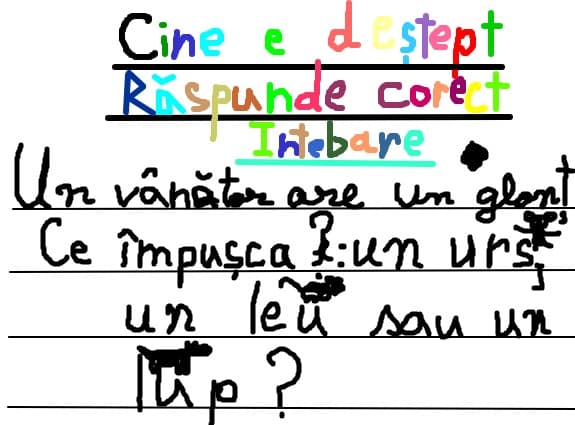 Cine e deștept
Răspunde corect
Intebare
Un vânător are un glonț
Ce împușca?:un urs,
un leu sau un
lup?